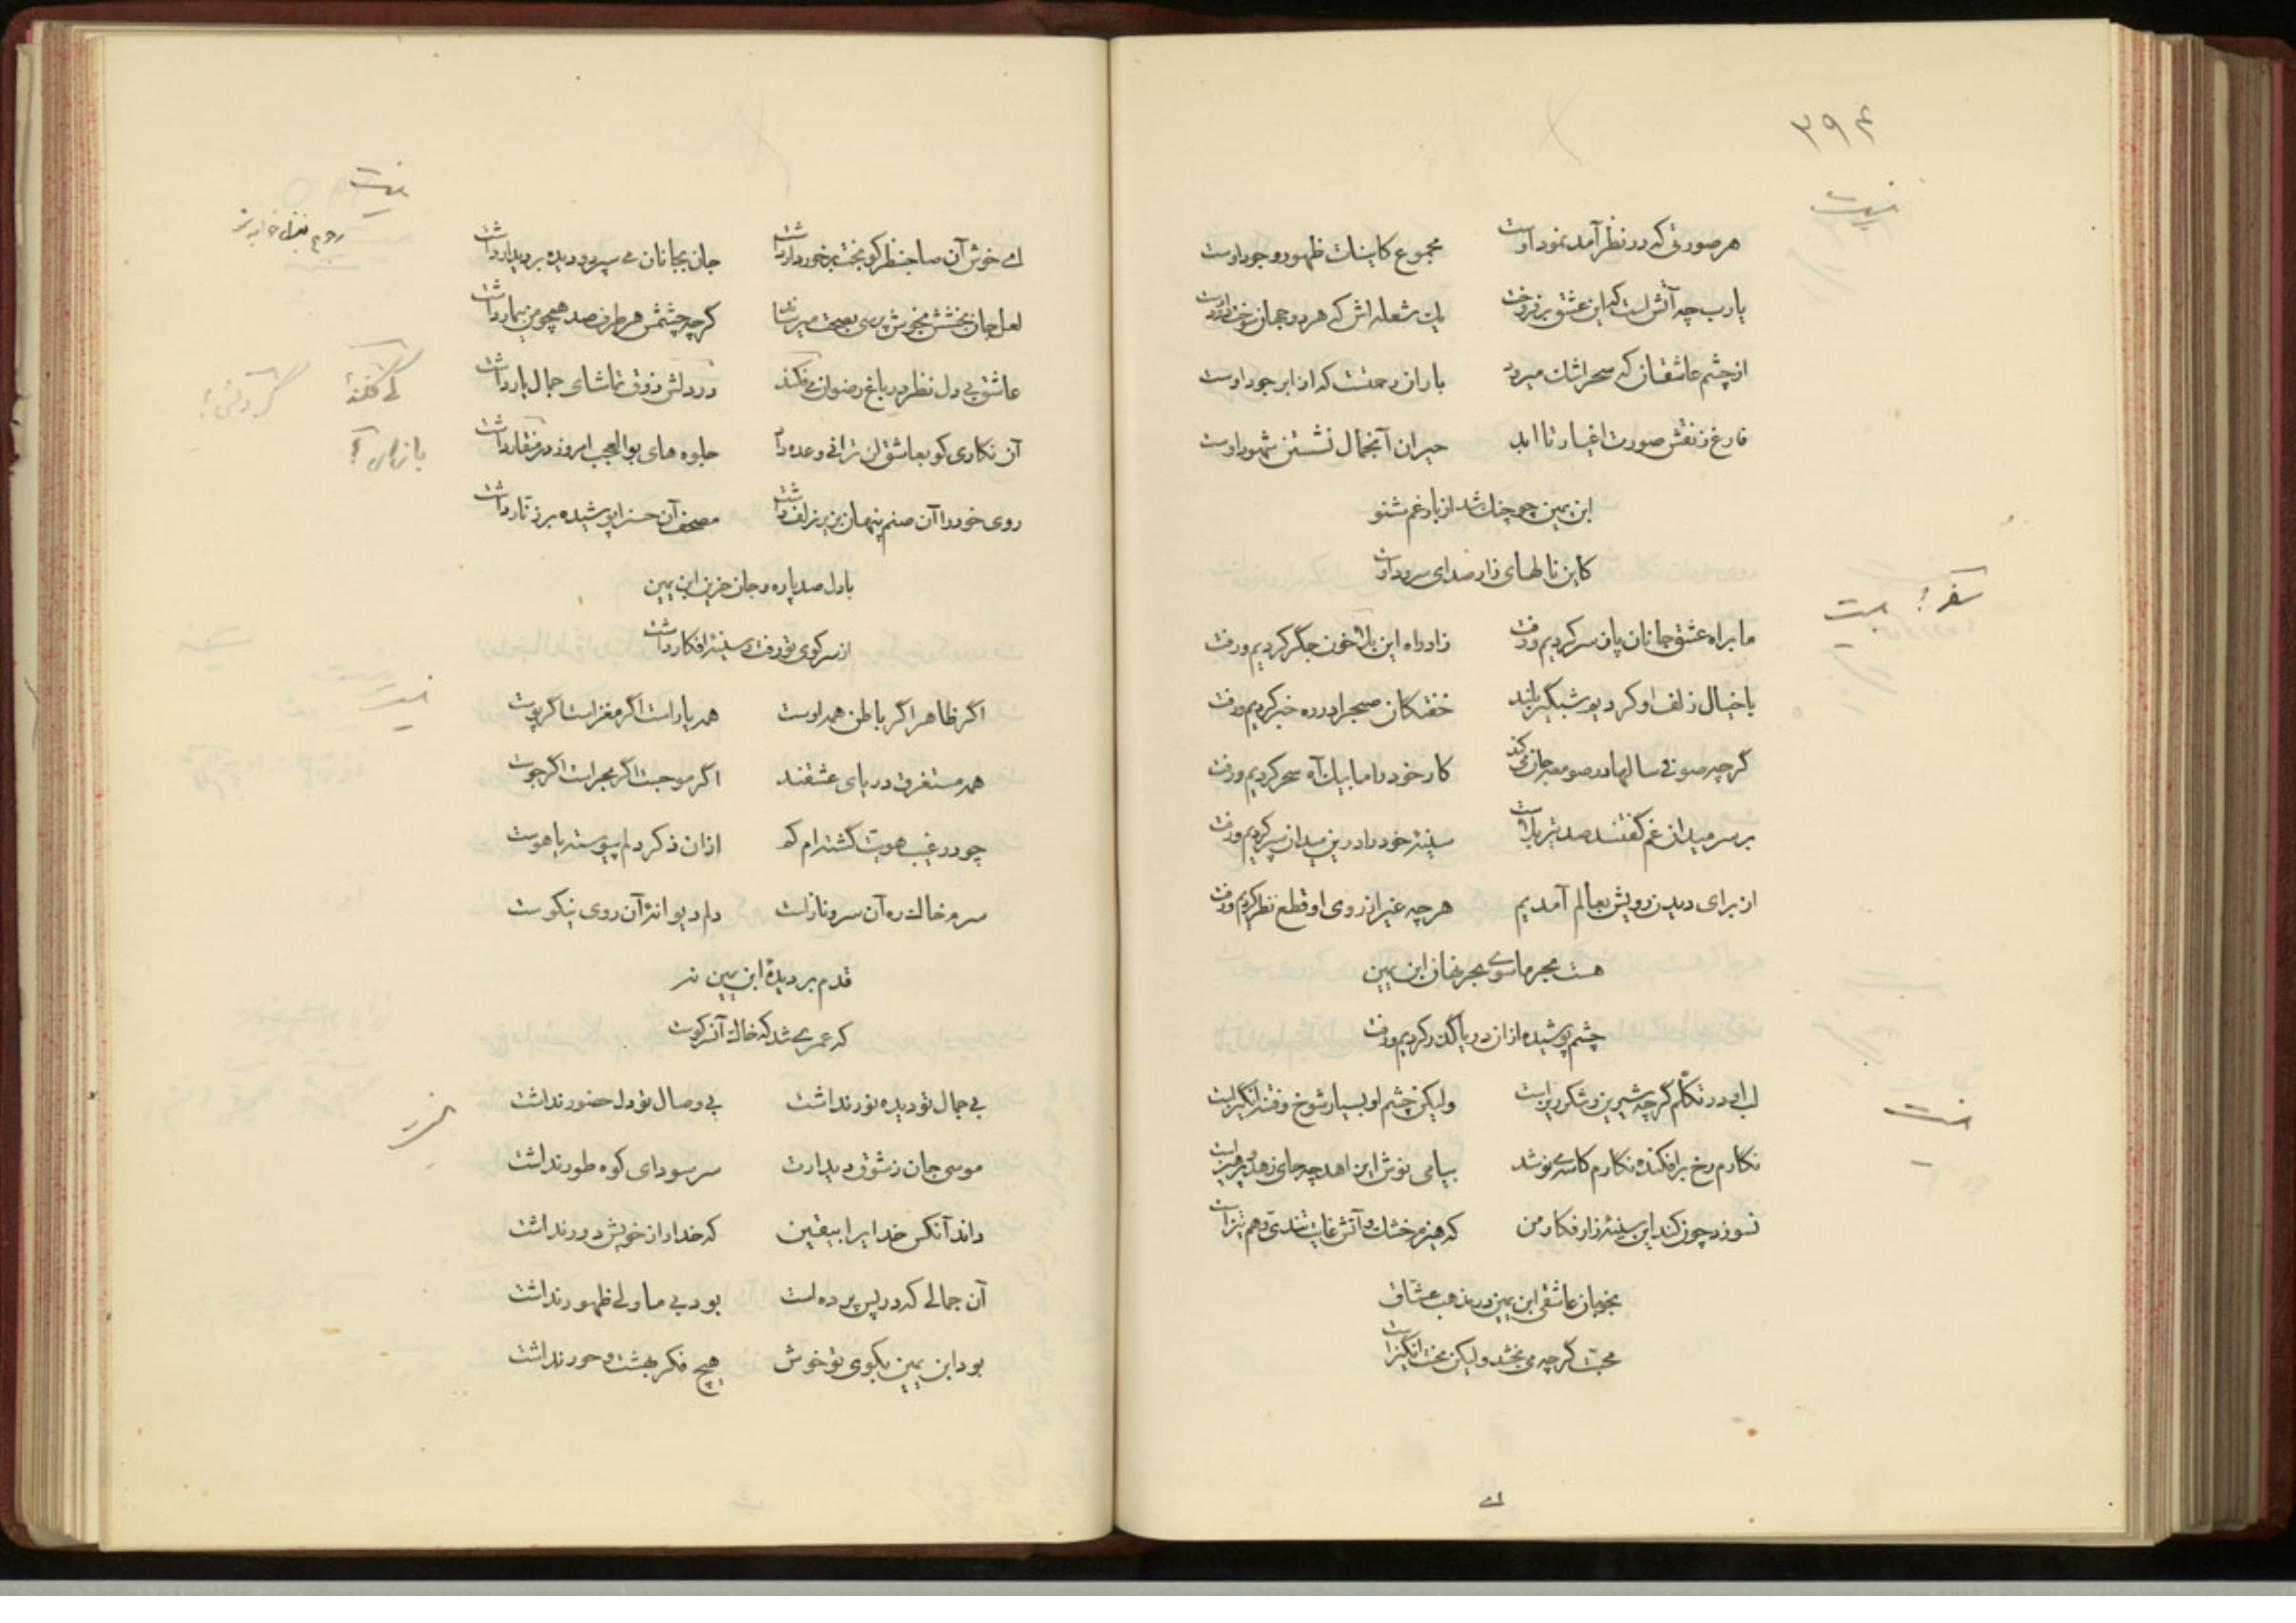 ۳۹۴
نیست
هر صورتی که در نظر آمد نمود اوست مجموع کاینات ظهور وجود اوست
یارب چه آتش است که این عشق برفروخت یک شعله اش که هر دو جهان سوخت دود اوست
از چشم عاشقان که سحر اشک میرود باران رحمتست که از ابر جود اوست
فارغ ز نقش صورت اغیار تا ابد حیران آنجمال نشستن شهود اوست
ابن یمین چو چنک شد از بار غم شنو
کاین نالهای زار صدای سرود اوست
ما براه عشق جانان پا ز سر کردیم و رفت زاد راه این بلا خون جگر کردیم و رفت
با خیال زلف او کردیم شبگیر بلند خفتکان صبح را در ره خبر کردیم و رفت
گرچه صوفی سالها در صومعه جان می کند کار خود را ما بیک آه سحر کردیم و رفت
بر سر میدان غم کفتند صد تیر بلاست سینهٔ خود را درین میدان سپر کردیم و رفت
از برای دیدن رویش بعالم آمدیم هر چه غیر از روی او قطع نظر کردیم و رفت
هست مجرماسوی بحر فغان ابن یمین
چشم پوشیده ازان دریا گذر کردیم و رفت
لب او در تکلّم گرچه شیرین و شکرریز است ولیکن چشم او بسیار شوخ و فتنه انگیز است
نکارم رخ برافکنده نکارم کاسه می نوشد بیا می نوش ای زاهد چه جای زهد و پرهیز است
نسوزد چون کند این سینهٔ زار فکار من که هیزم خشک و آتش غایت تندی و هم تیز است
بخوبان عاشقی ابن یمین در مذهب عشاق
محبت گرچه می بخشد ولیکن محنت انگیز است
ای
نیست
ای خوش آن صاحبنظر کو بخت برخوردار داشت جان بجانان می سپرد و دیده بر دیدار داشت
لعل جان بخشش بخوش پرسی بصحت میرساند گرچه چشمش هر طرف صد همچو من بیمار داشت
عاشق بی دل نظر در باغ رضوان می فکند در دلش ذوق تماشای جمال یار داشت
آن نکاری کو بعاشق لن ترانی وعده داد جلوه های بوالعجب امروز در منقار داشت
روی خود را آن صنم پنهان بزیر زلف داشت مصحف آن حسن را پوشیده بر زنار داشت
با دل صد پاره و جان حزین ابن یمین
از سر کوی تو رفت و سینهٔ افکار داشت
اگر ظاهر اگر باطن همه اوست همه یار است اگر مغز است اگر پوست
همه مستغرق دریای عشقند اگر موجست اگر بحر است اگر جوست
چو در غیب هویت گشته ام گم ازان ذکر دلم پیوسته یا هوست
سرم خاک ره آن سرو ناز است دلم دیوانهٔ آن روی نیکوست
قدم بر دیدهٔ ابن یمین نه
که عمری شد که خاک آن سر کوست
بی جمال تو دیده نور نداشت بی وصال تو دل حضور نداشت
موسی جان ز شوق دیدارت سر سودای کوه طور نداشت
داند آنکس خدایرا بیقین که خدا را ز خویش دور نداشت
آن جمالی که در پس پرده است بود بی ما ولی ظهور نداشت
بود ابن یمین بکوی تو خوش هیچ فکر بهشت و حور نداشت